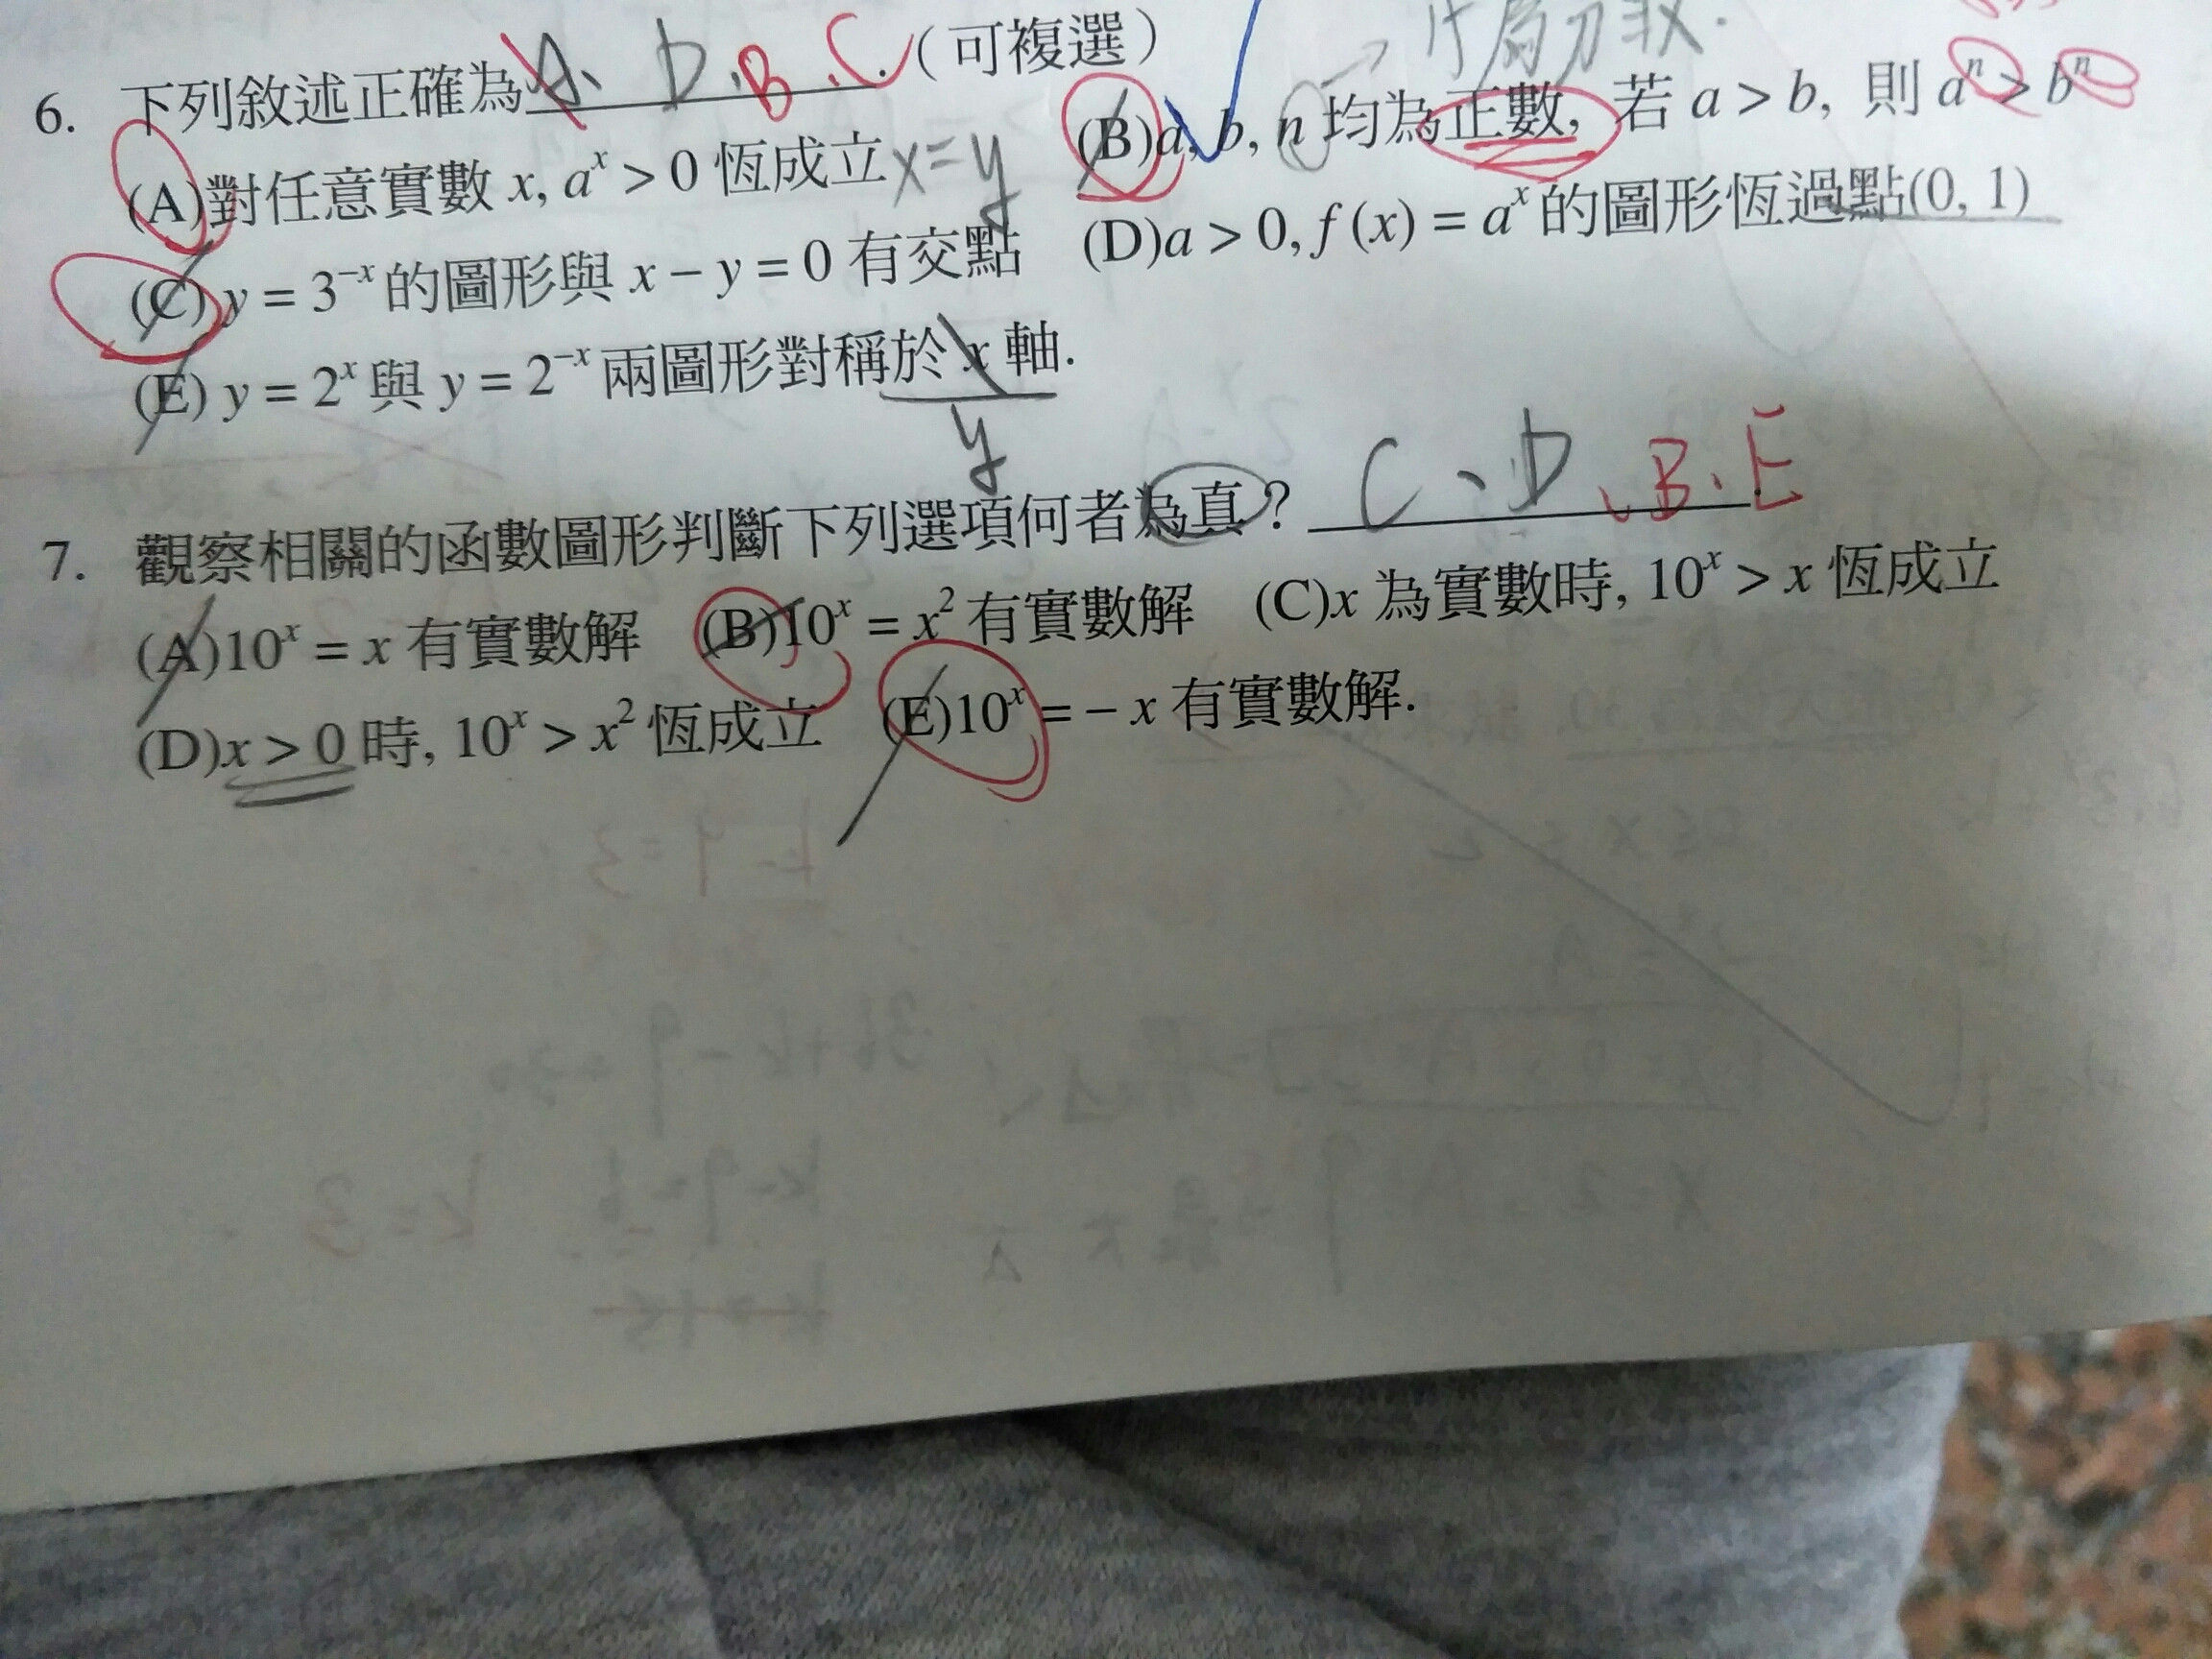 → 什為分數.
6. 下列敘述正確為 A、D、B、C.(可複選)
(A)對任意實數 x, aˣ > 0 恆成立 x=y (B)a, b, n 均為正數, 若 a > b, 則 aⁿ > bⁿ
(C) y = 3⁻ˣ 的圖形與 x − y = 0 有交點 (D)a > 0, f (x) = aˣ 的圖形恆過點(0, 1)
(E) y = 2ˣ 與 y = 2⁻ˣ 兩圖形對稱於 x 軸.
y
7. 觀察相關的函數圖形判斷下列選項何者為真? C、D、B、E
(A)10ˣ = x 有實數解 (B)10ˣ = x² 有實數解 (C)x 為實數時, 10ˣ > x 恆成立
(D)x > 0 時, 10ˣ > x² 恆成立 (E)10ˣ = − x 有實數解.